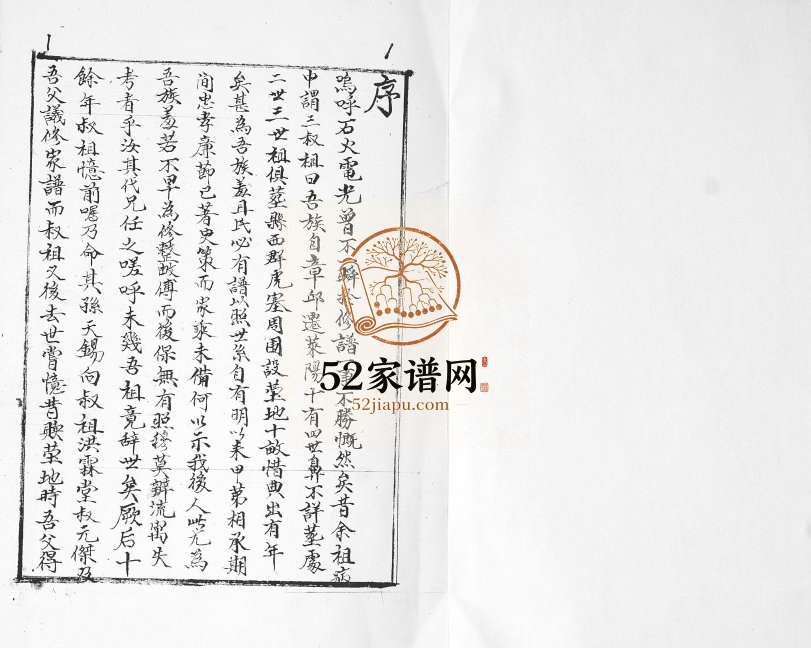 1
1
序
嗚呼石火電光曾不瞬於修譜一事不勝慨然矣昔余祖病
中謂三叔祖曰吾族自章邱遷萊陽十有四世鼻不詳塟處
二世三世祖俱塟縣西群虎塞周围設塋地十畝惜典出有年
矣甚為吾族羞且民必有譜以照世系自有明以来甲第相承期
间忠孝廉節已著史策而家乘未備何以示我後人此尤為
吾族羞若不早為修整越傳而後保無有照穆莫辨流寓失
考者乎汝其代兄任之嗟呼未幾吾祖竟辞世矣厥后十
餘年叔祖憶前嘱乃命其孫天錫向叔祖洪霖堂叔元傑及
吾父議修家譜而叔祖又後去世嘗憶昔聚塋地時吾父得
52家谱网
52jiapu.com